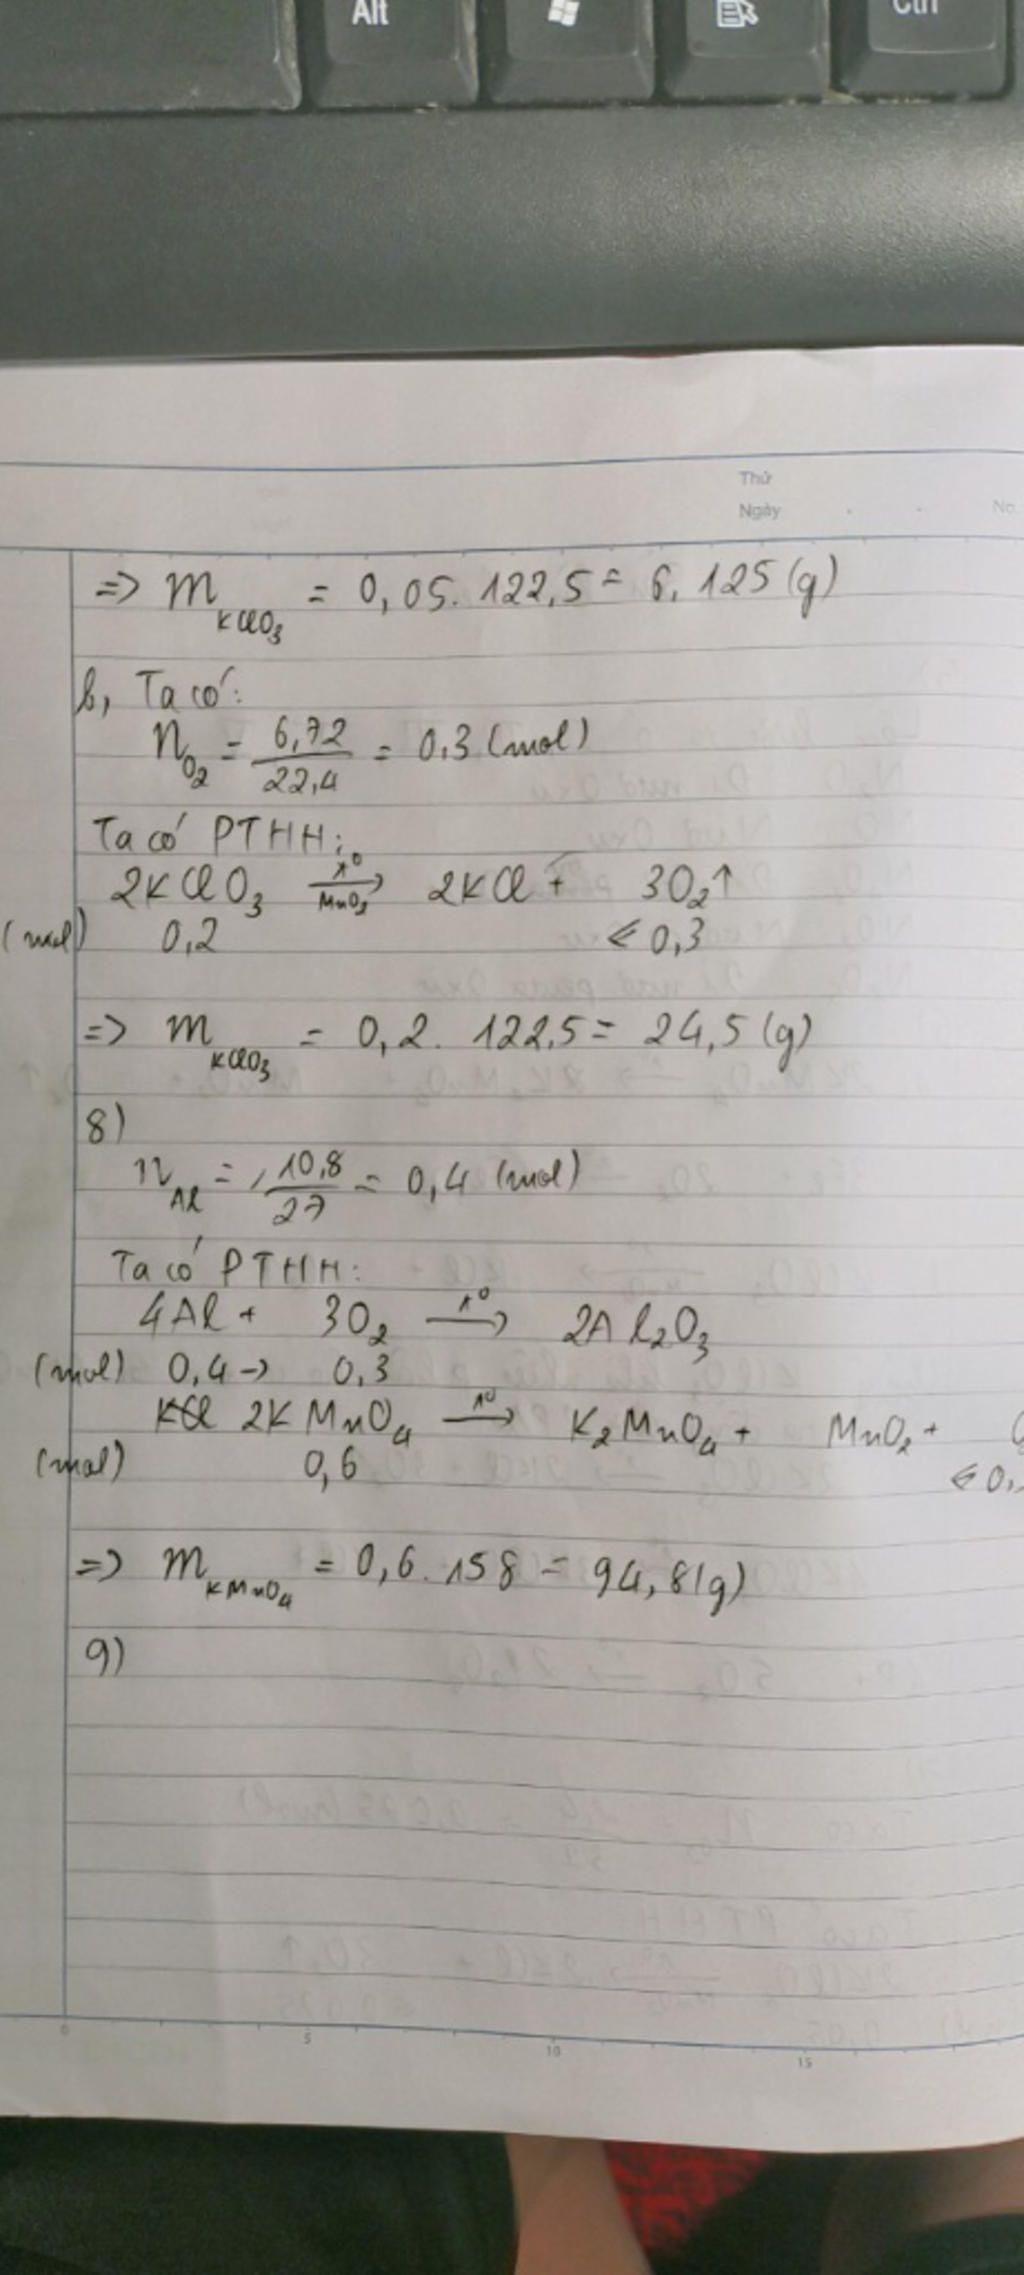 Alt
Ctrl
Thứ
Ngày
No.
=> m KClO3 = 0,05. 122,5 = 6,125 (g)
b, Ta có:
n O2 = 6,72 / 22,4 = 0,3 (mol)
Ta có PTHH:
2KClO3 t° → MnO2 2KCl + 3O2↑
(mol) 0,2 ← 0,3
=> m KClO3 = 0,2. 122,5 = 24,5 (g)
8)
n Al = 10,8 / 27 = 0,4 (mol)
Ta có PTHH:
4Al + 3O2 t° → 2Al2O3
(mol) 0,4 → 0,3
2KMnO4 t° → K2MnO4 + MnO2 +
(mol) 0,6 ← 0,
=> m KMnO4 = 0,6. 158 = 94,8 (g)
9)
0 5 10 15